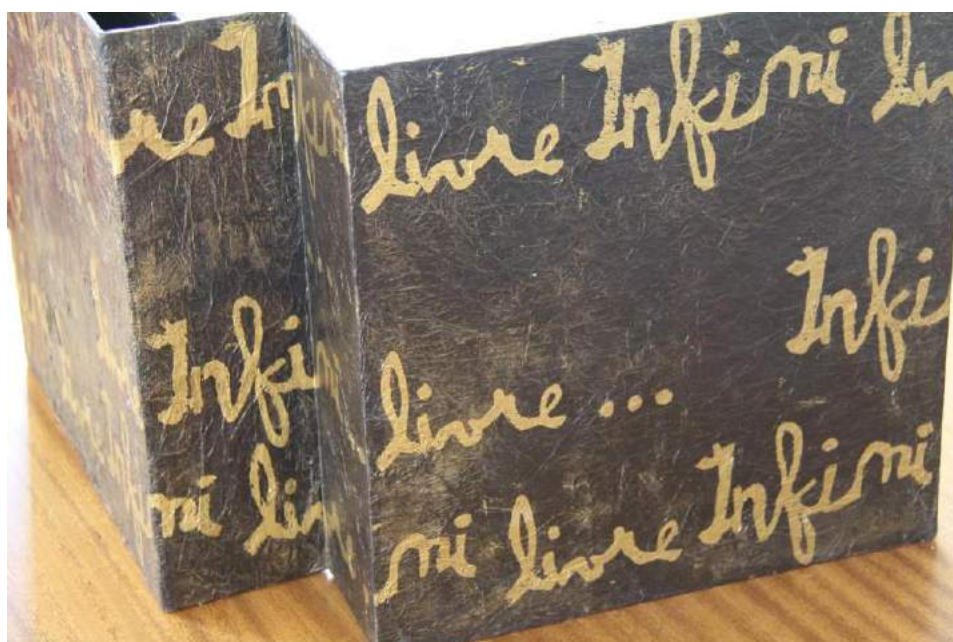 livre Infini liv
Infi
livre ...
ni livre Infini
re In
Infi
ni liv